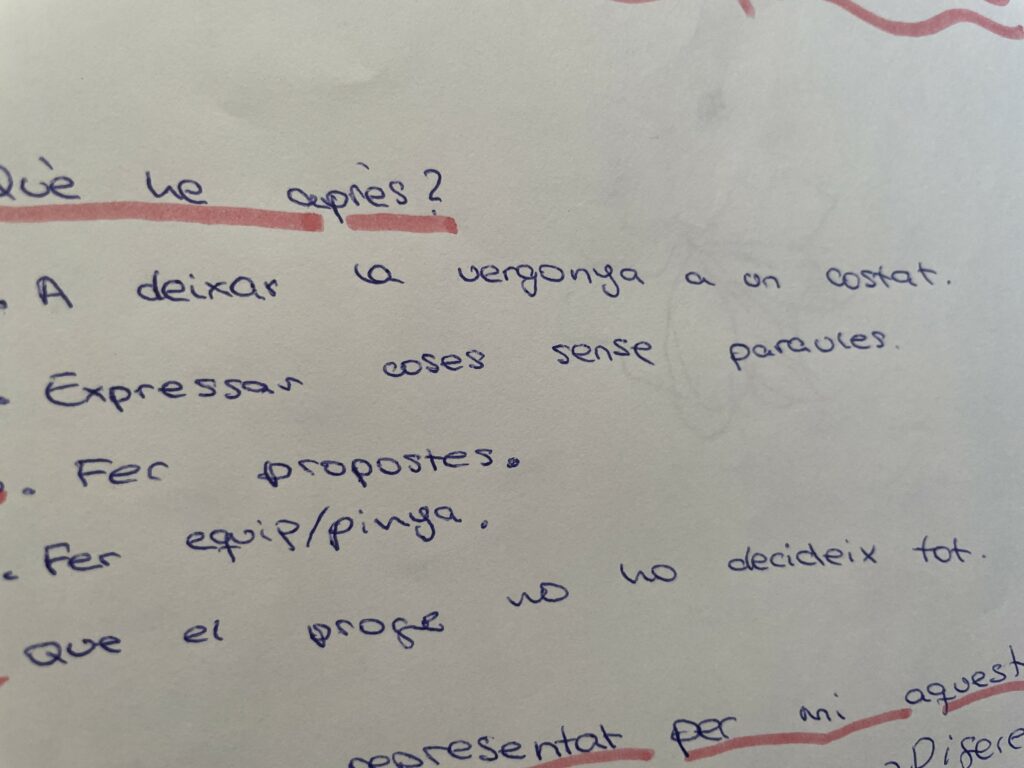 Què he après?
. A deixar la vergonya a un costat.
. Expressar coses sense paraules.
. Fer propostes.
. Fer equip/pinya.
Que el profe no ho decideix tot.
representat per mi aquest
. Difere